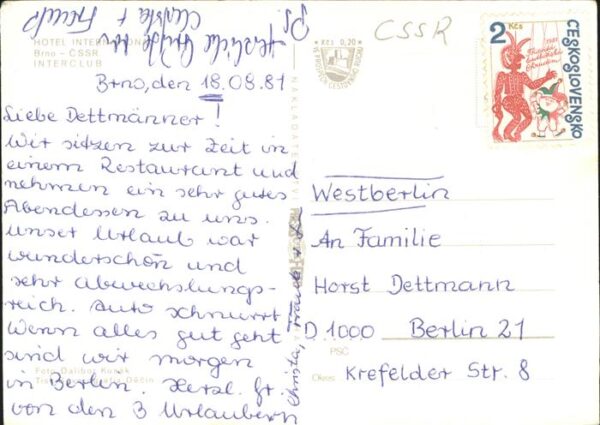 HOTEL INTERNATIONAL
Brno - ČSSR
INTERCLUB
PS.
Herzliche Grüße von
Christa +
Kčs 0,20
ČSSR
2 Kčs
1981
ČESKOSLOVENSKO
Brno, den 18.08.81
Liebe Dettmänner!
Wir sitzen zur Zeit in
einem Restaurant und
nehmen ein sehr gutes
Abendessen zu uns.
Unser Urlaub war
wunderschön und
sehr abwechslungs-
reich. Auto schnurrt
Wenn alles gut geht
sind wir morgen
in Berlin. Herzl. Gr.
von den 3 Urlaubern
Christa,
Foto Dalibor Kusák
Westberlin
An Familie
Horst Dettmann
D 1000 Berlin 21
PSČ
Okres Krefelder Str. 8